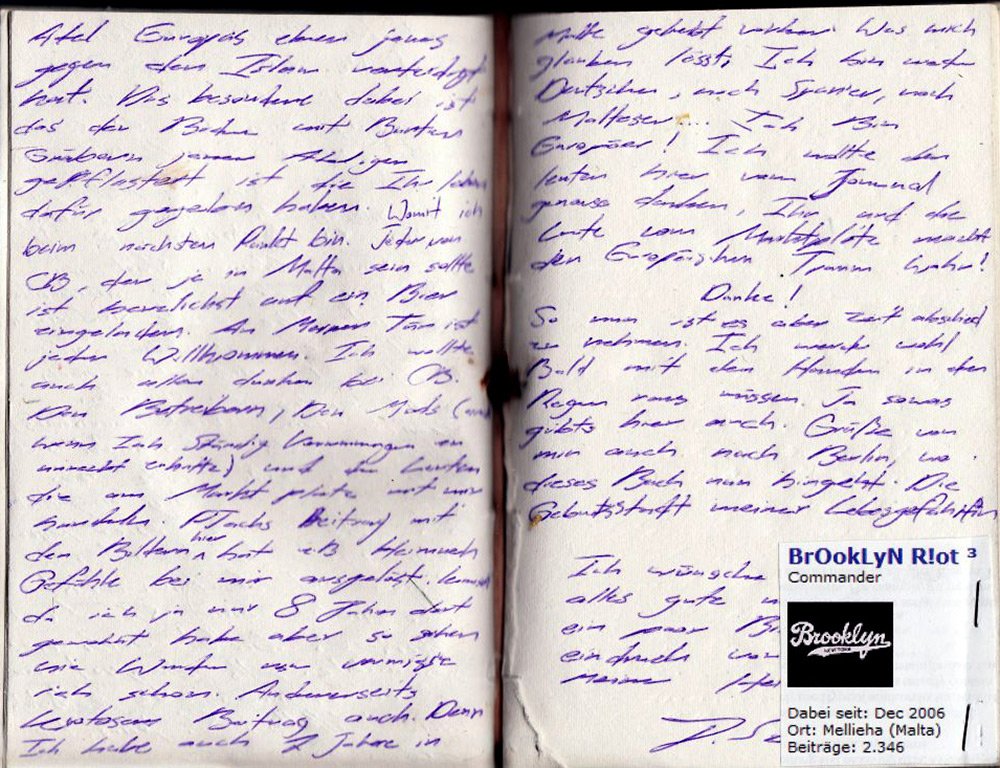 Adel Europas einen jenes
gegen den Islam verteidigt
hat. Das besondere dabei ist
das der Boden mit Bunten
Gräbern jener Adeligen
gepflastert ist die Ihr leben
dafür gegeben haben. Womit ich
beim nächsten Punkt bin. Jeder von
CB, der je in Malta sein sollte
ist herzlichst auf ein Bier
eingeladen. An Meiner Tür ist
jeder Willkommen. Ich wollte
auch allen danken bei CB.
Den Betreibern, Den Mods (auch
wenn Ich Ständig Verwarnungen
erhalte) und den Leuten
die am Marktplatz mit mir
handeln. Beitrag mit
den Bildern hier hat zB Heimweh
Gefühle bei mir ausgelöst.
da ich ja nur 8 Jahre dort
gewohnt habe aber so sehen
wie Wunder man vermisst
sich schon. Andererseits
Beitrag auch. Denn
Ich habe auch 7 Jahre in
Malta gelebt vorher. Was mich
glauben lässt, Ich bin weder
Deutscher, noch Spanier, noch
Malteser... Ich Bin
Europäer! Ich wollte den
leuten hier vom Journal
genauso danken, Ihr und die
Leute vom Marktplatz macht
den Europäischen Traum wahr!
Danke!
So nun ist es aber Zeit abschied
zu nehmen. Ich werde wohl
Bald mit dem Hunden in den
Regen raus müssen. Ja sowas
gibts hier auch. Grüße von
mir auch nach Berlin, wo
dieses Buch nun hingeht. Die
Geburtsstadt meiner Lebensgefährtin
Ich wünsche
alles gute
ein paar
eindruck von
Meiner
BrOokLyN R!ot ³
Commander
Brooklyn
NEW YORK
Dabei seit: Dec 2006
Ort: Mellieha (Malta)
Beiträge: 2.346